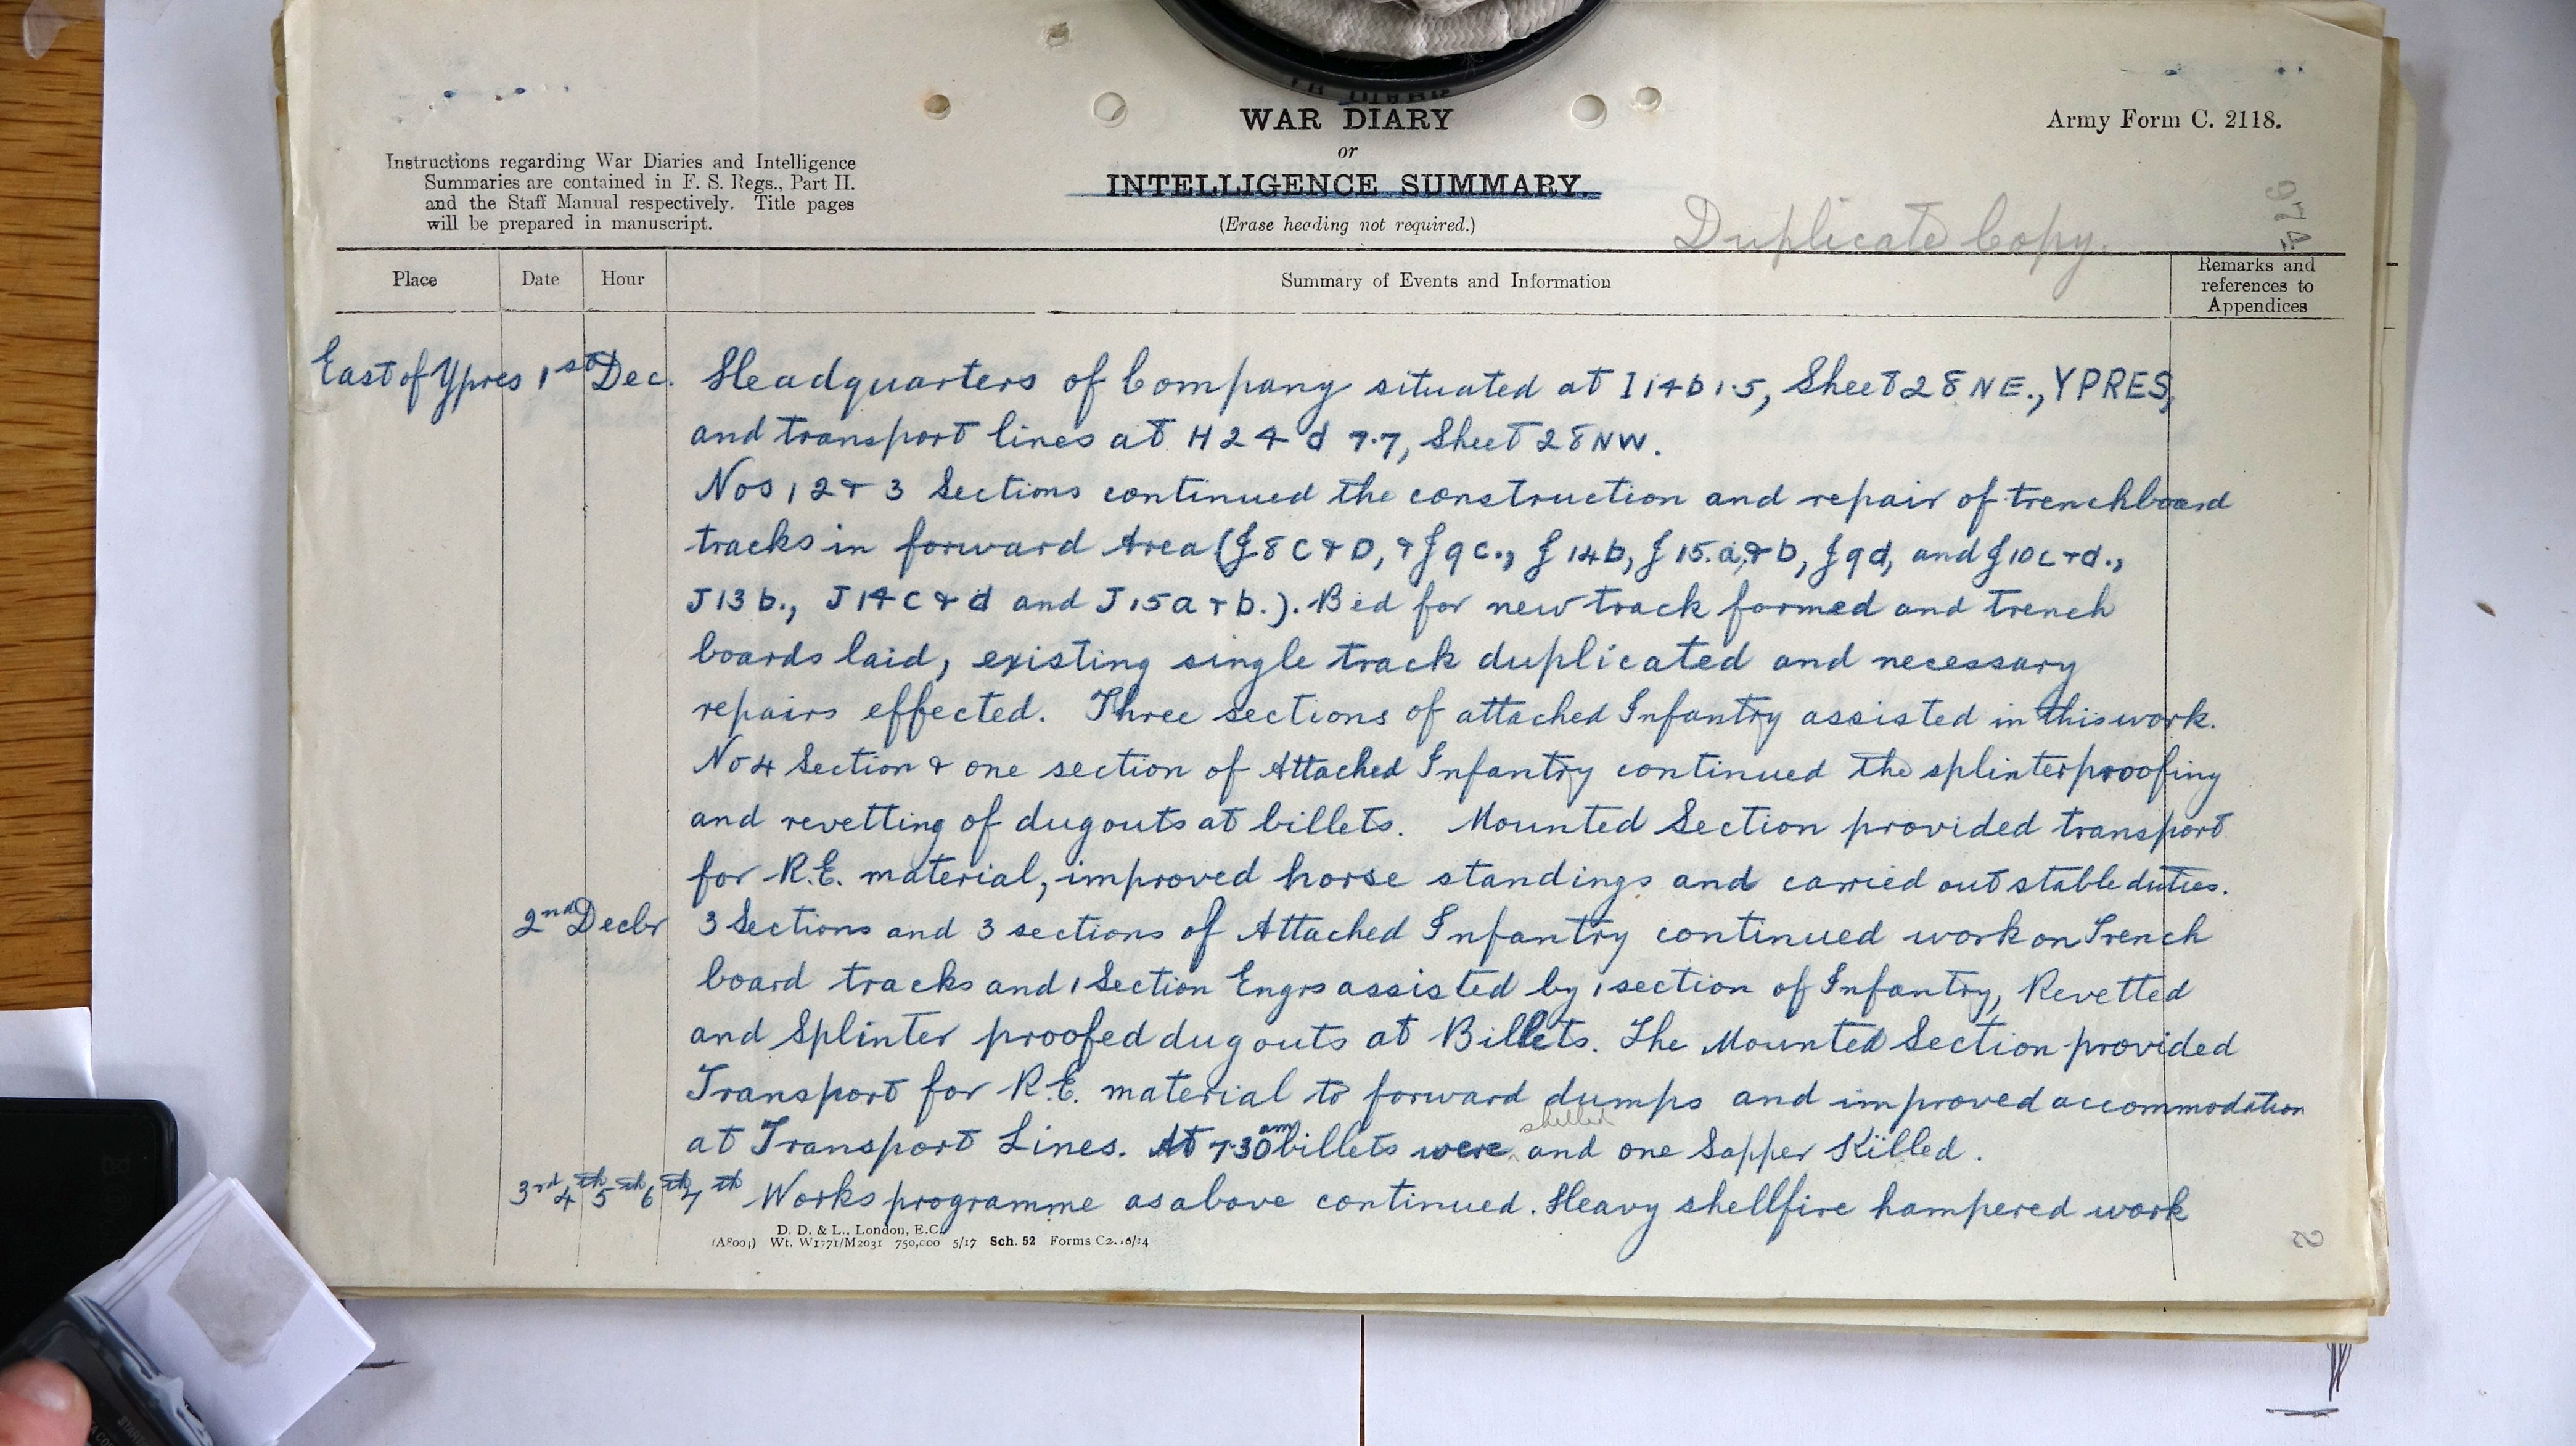 WAR DIARY
or
INTELLIGENCE SUMMARY.
(Erase heading not required.)
Army Form C. 2118.
Instructions regarding War Diaries and Intelligence
Summaries are contained in F. S. Regs., Part II.
and the Staff Manual respectively. Title pages
will be prepared in manuscript.
Duplicate Copy.
Place Date Hour Summary of Events and Information Remarks and
references to
Appendices
East of Ypres 1st Dec. Headquarters of Company situated at I 14 b 1.5, Sheet 28 NE., YPRES,
and transport lines at H 24 d 7.7, Sheet 28 NW.
Nos 1 2 & 3 Sections continued the construction and repair of trenchboard
tracks in forward Area (J 8 C & D, & J 9 c., J 14 b, J 15. a, & b, J 9 d, and J 10 c & d.,
J 13 b., J 14 c & d and J 15 a & b.). Bed for new track formed and trench
boards laid, existing single track duplicated and necessary
repairs effected. Three sections of attached Infantry assisted in this work.
No 4 Section & one section of Attached Infantry continued the splinterproofing
and revetting of dugouts at billets. Mounted Section provided transport
for R.E. material, improved horse standings and carried out stable duties.
2nd Decbr 3 Sections and 3 sections of Attached Infantry continued work on Trench
board tracks and 1 Section Engrs assisted by 1 section of Infantry, Revetted
and Splinter proofed dugouts at Billets. The Mounted Section provided
Transport for R.E. material to forward dumps and improved accommodation
at Transport Lines. At 7.30 am billets were shelled and one Sapper Killed.
3rd 4th 5th 6th 7th Works programme as above continued. Heavy shellfire hampered work
D. D. & L., London, E.C.
(A8004) Wt. W1771/M2031 750,000 5/17 Sch. 52 Forms C2118/14